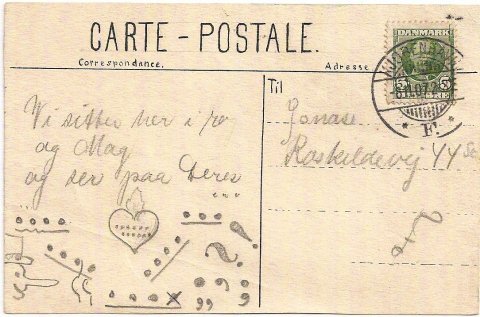 CARTE - POSTALE.
Correspondance.
Adresse
DANMARK
5 5
Til
Vi sitter her i ro
og Mag
og ser paa Deres
...
Jonase
Roskildevej 44
F.
? !